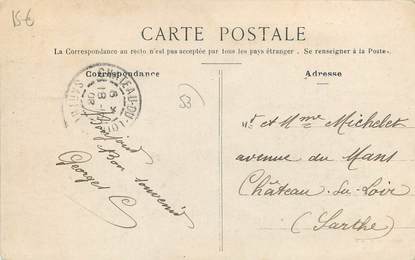 15€
CARTE POSTALE
La Correspondance au recto n'est pas acceptée par tous les pays étranger. Se renseigner à la Poste.
Correspondance
Adresse
CHATEAU-DU-LOIR
SARTHE
18
6
08
53
Bonjour
Bon souvenir
Georges
Mr et Mme Michelet
avenue du Mans
Château-du-Loir
(Sarthe)